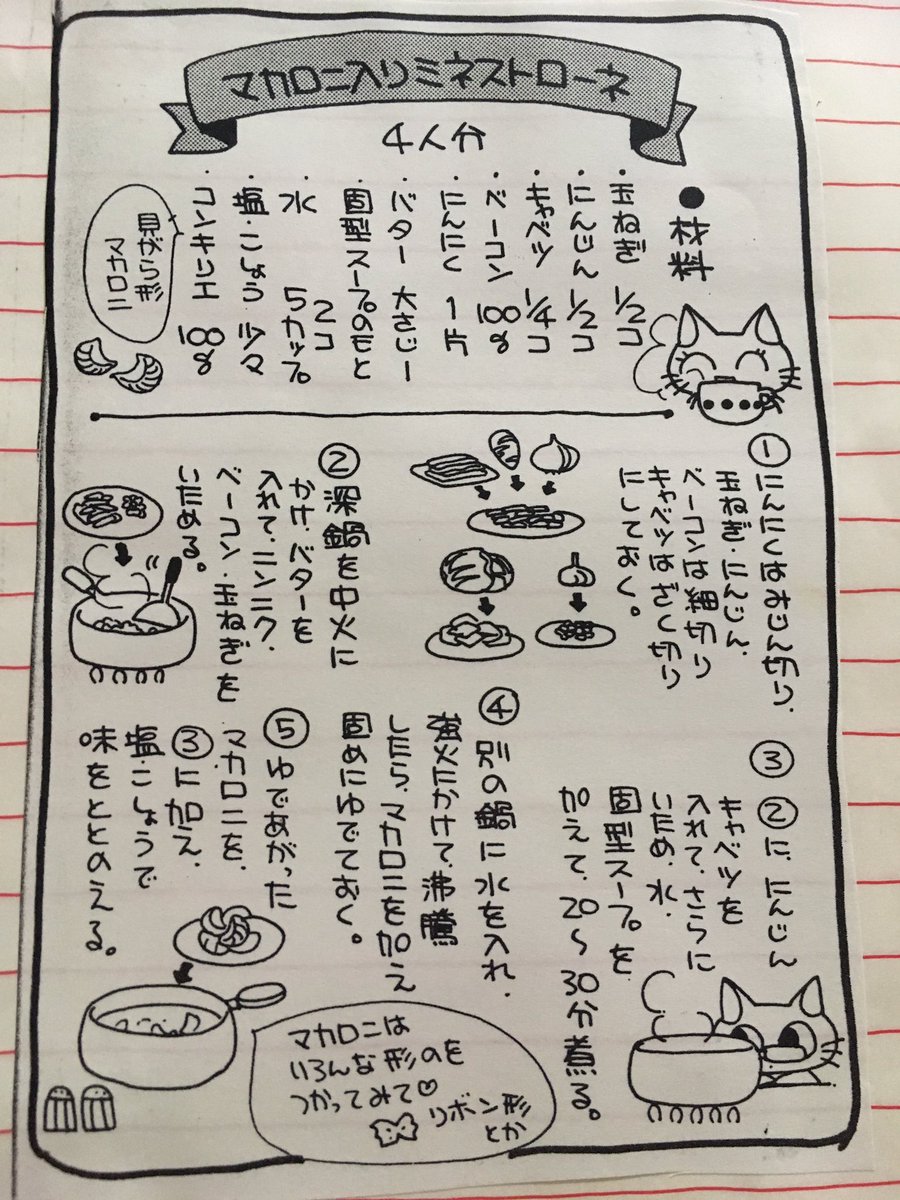 マカロニ入りミネストローネ
4人分
●材料
・玉ねぎ 1/2コ
・にんじん 1/2コ
・キャベツ 1/4コ
・ベーコン 100g
・にんにく 1片
・バター 大さじ一
・固型スープのもと
2コ
・水 5カップ
・塩・こしょう 少々
・コンキリエ 100g
貝がら形
マカロニ
① にんにくはみじん切り、
玉ねぎ・にんじん、
ベーコンは細切り
キャベツはざく切り
にしておく。
② 深鍋を中火に
かけ、バターを
入れて、ニンニク、
ベーコン・玉ねぎを
いためる。
③ ②に、にんじん
キャベツを
入れて、さらに
いため、水・
固型スープを
加えて、20〜30分煮る。
④ 別の鍋に水を入れ、
強火にかけて、沸騰
したら、マカロニを加え
固めにゆでておく。
⑤ ゆであがった
マカロニを、
③に加え、
塩・こしょうで
味をととのえる。
マカロニは
いろんな形のを
つかってみて♡
リボン形
とか